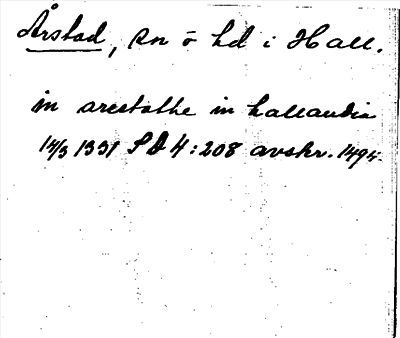 Årstad, sn o hd i Hall.
in arestathe in hallandia
14/3 1331 SD 4:208 avskr. 1494.